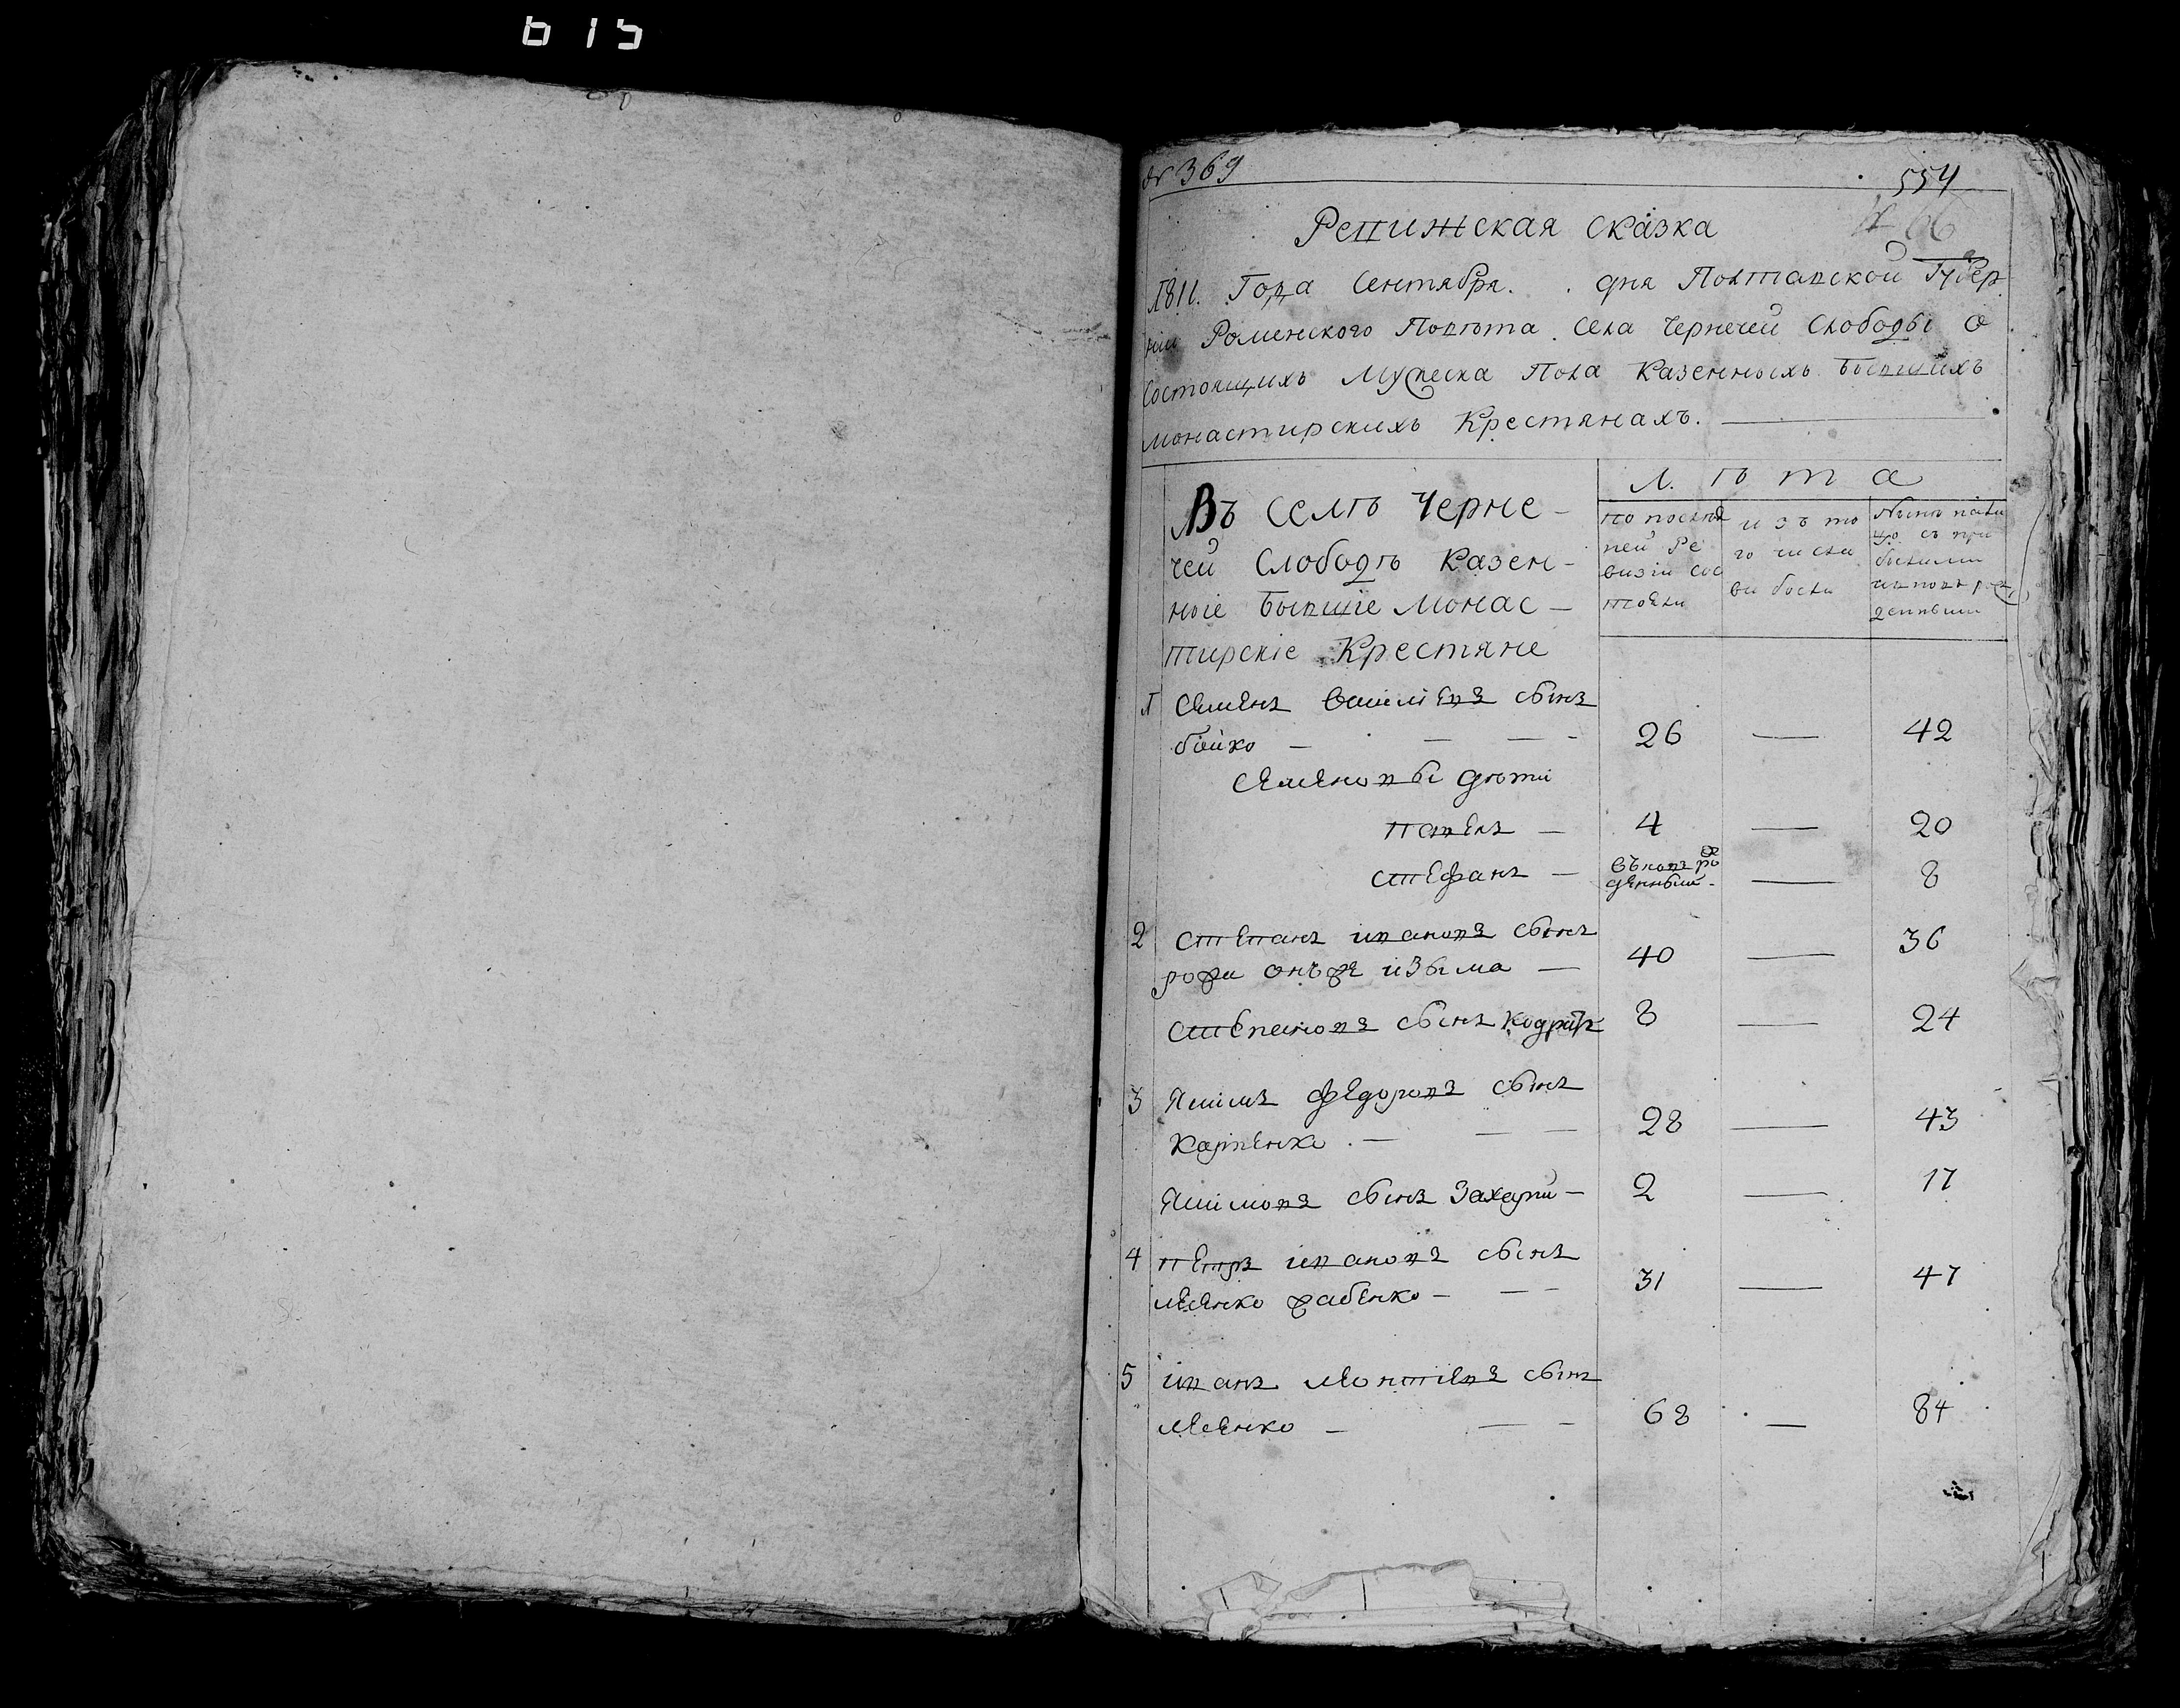 615
№ 369
554
Ревижская сказка
1811. Года Сентября. . дня Полтавской Губер
ніи Роменского Повѣта Села Чернечей Слободы О
Состоящихъ Мужеска Пола Казенныхъ бывшихъ
монастирскихъ Крестянахъ.
Л ѣ т а
Въ Селѣ Черне-
чей Слободѣ Казен-
ніе бывшіе Монас-
тирскіе Крестяне
по послед
ней Ре
визіи сос
тояли
изъ то
го числа
вибыли
Нынѣ на ли
цо съ при
былими
и вновь рож
денными
1 Семенъ василіевъ сынъ
бойко 26 — 42
Семеновы дѣти
Павелъ — 4 — 20
Стефанъ — вьновь ро
жденный — 8
2 Степанъ ивановъ сынъ
40 — 36
Степановъ сынъ Кодратъ 8 — 24
3 Якимъ федоровъ сынъ
Карпенко 28 — 43
Якимовъ сынъ Захарий — 2 — 17
4 Петръ ивановъ сынъ
31 — 47
5 иванъ Леонтіевъ сынъ
68 — 84